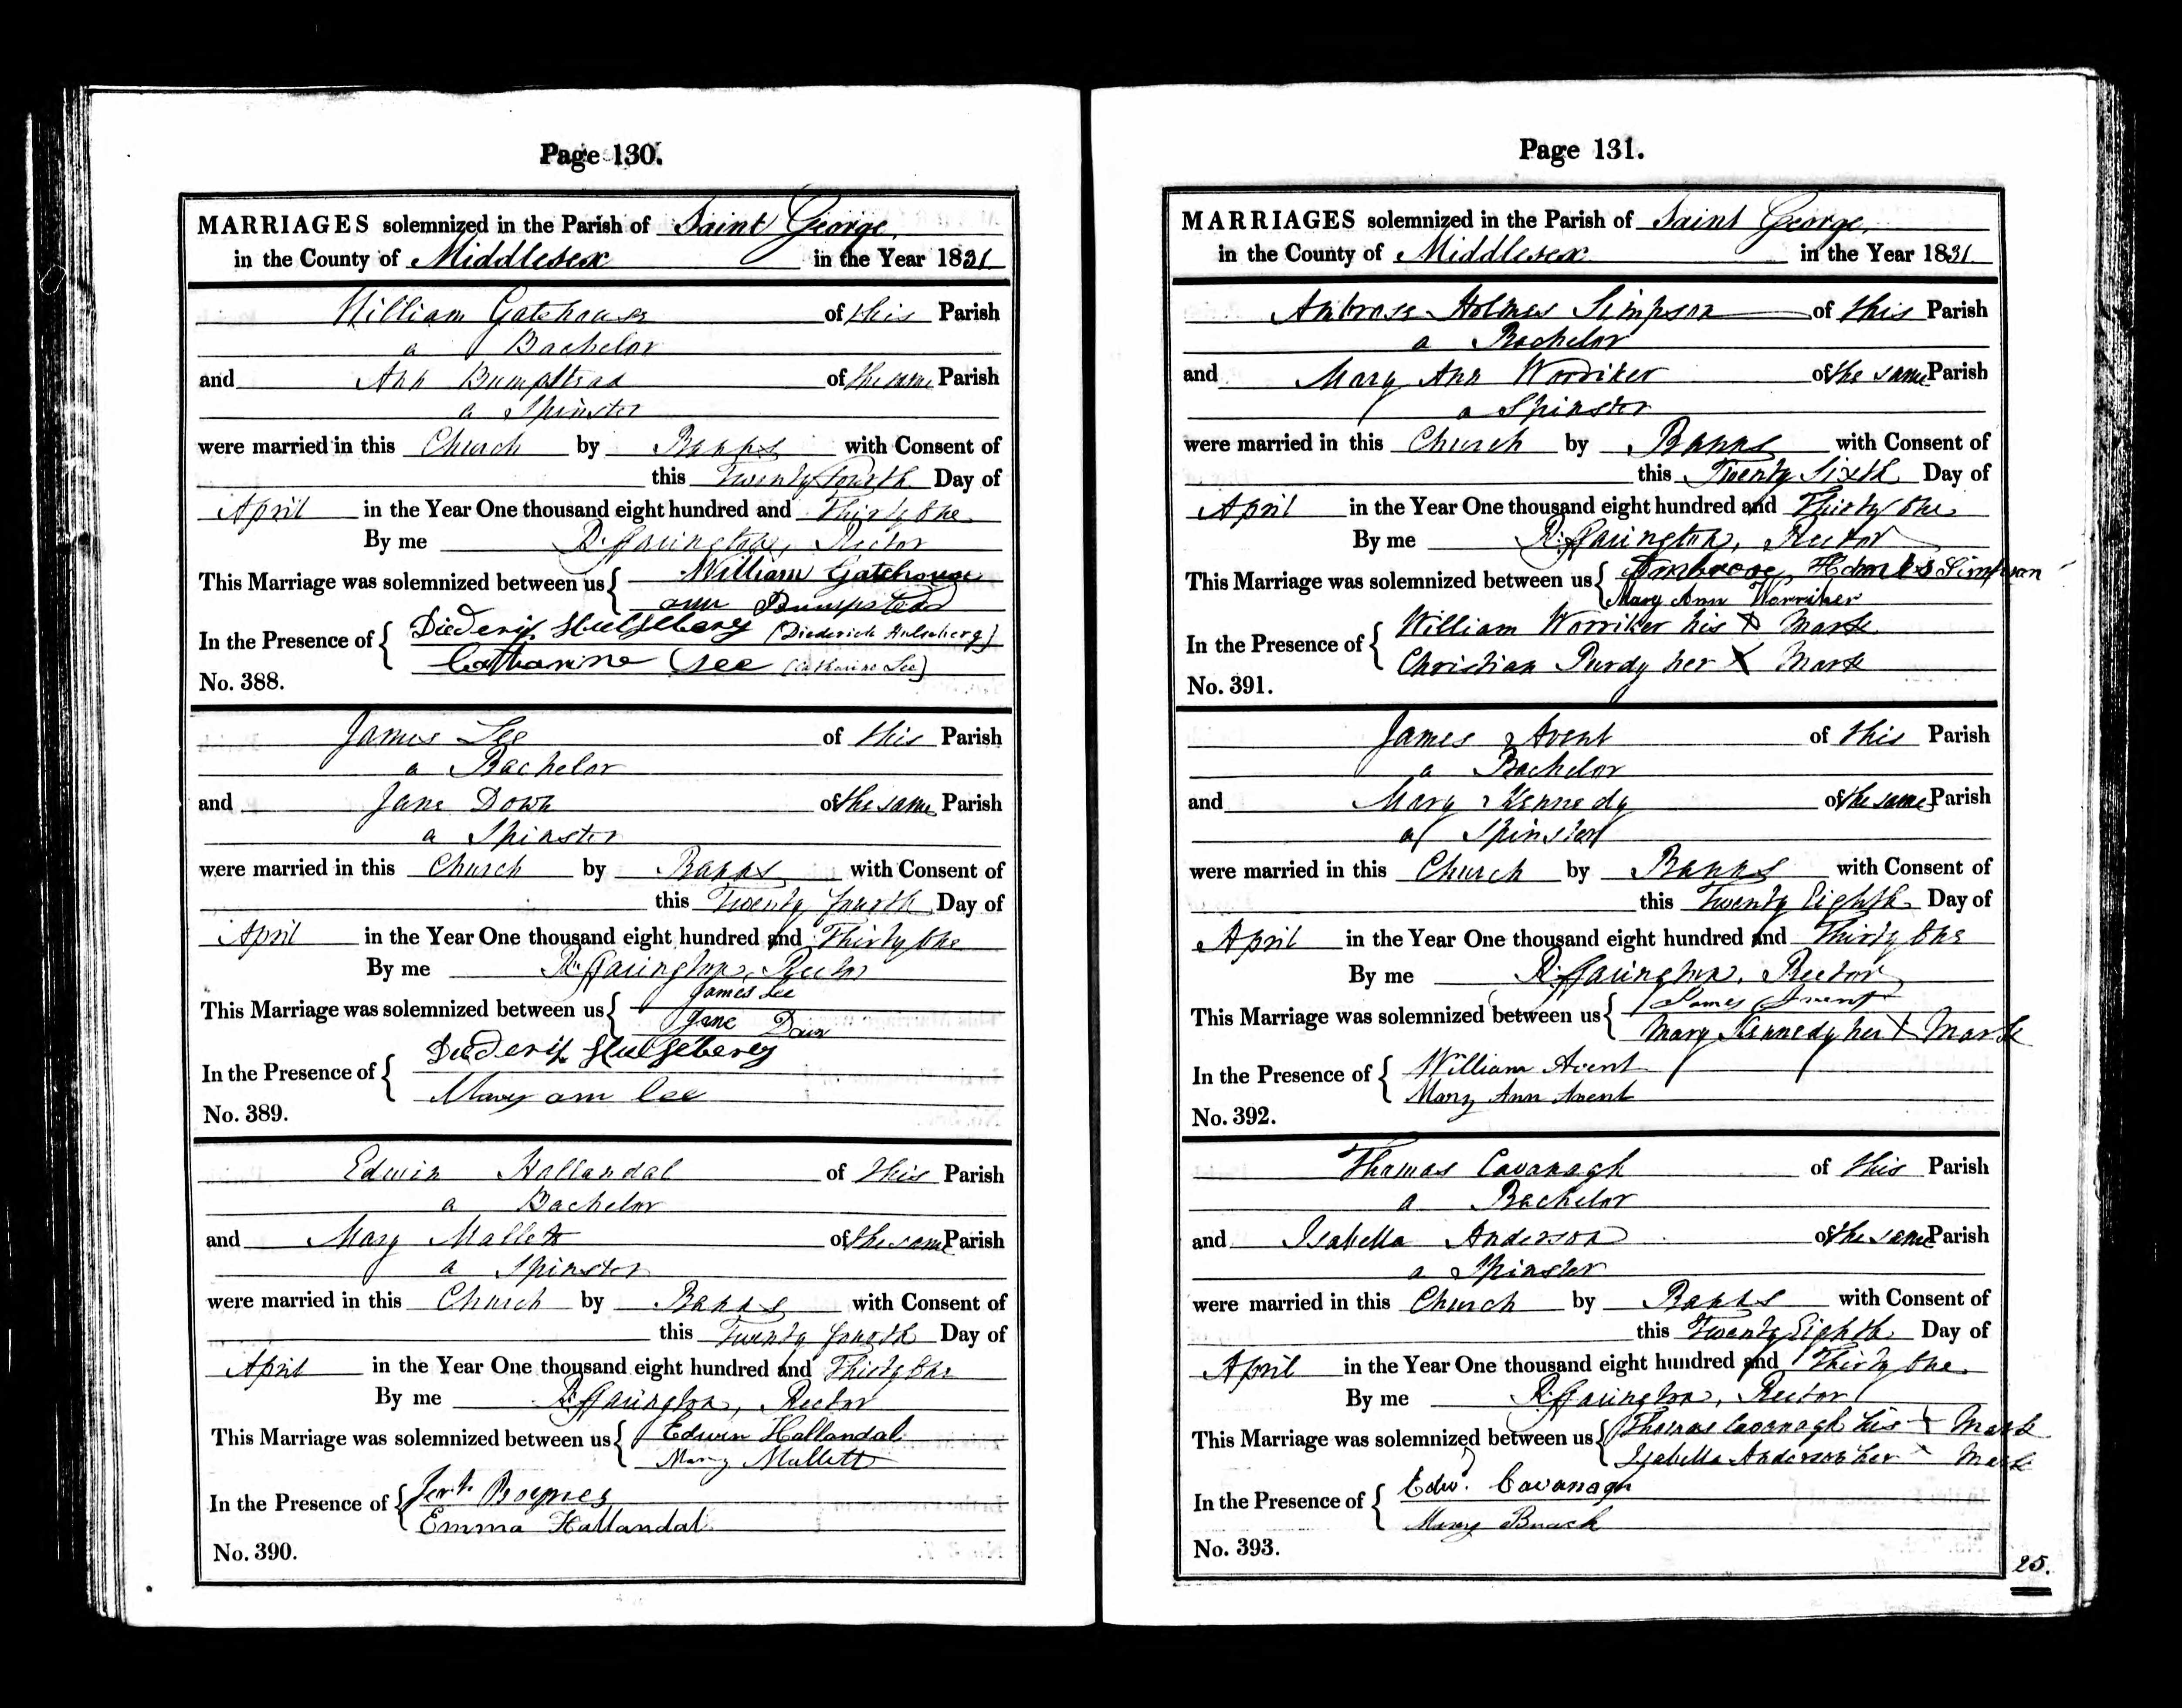 Page 130.
MARRIAGES solemnized in the Parish of Saint George,
in the County of Middlesex in the Year 1831
William Gatehouse of this Parish
a Bachelor
and Ann Bumpstead of the same Parish
a Spinster
were married in this Church by Banns with Consent of
this Twenty Fourth Day of
April in the Year One thousand eight hundred and Thirty One
By me R: ffarington, Rector
This Marriage was solemnized between us { William Gatehouse
ann Bumpstead
In the Presence of { Diederich Hulseberg (Diederich Hulseberg)
Catharine Lee (Catharine Lee)
No. 388.
James Lee of this Parish
a Bachelor
and Jane Down of the same Parish
a Spinster
were married in this Church by Banns with Consent of
this Twenty fourth Day of
April in the Year One thousand eight hundred and Thirty One
By me R: ffarington, Rector
This Marriage was solemnized between us { James Lee
Jane Down
In the Presence of { Diederich Hulseberg
Mary ann Lee
No. 389.
Edwin Hallandal of this Parish
a Bachelor
and Mary Mallett of the same Parish
a Spinster
were married in this Church by Banns with Consent of
this Twenty fourth Day of
April in the Year One thousand eight hundred and Thirty One
By me R: ffarington, Rector
This Marriage was solemnized between us { Edwin Hallandal
Mary Mullett
In the Presence of {
Emma Hallandal
No. 390.
Page 131.
MARRIAGES solemnized in the Parish of Saint George,
in the County of Middlesex in the Year 1831
Ambrose Holmes Simpson of this Parish
a Bachelor
and Mary Ann Worriker of the same Parish
a Spinster
were married in this Church by Banns with Consent of
this Twenty Sixth Day of
April in the Year One thousand eight hundred and Thirty One
By me R: ffarington, Rector
This Marriage was solemnized between us { Ambrose Holmes Simpson
Mary Ann Worriker
In the Presence of { William Worriker his X Mark
Christian Purdy her X Mark
No. 391.
James Avent of this Parish
a Bachelor
and Mary Kennedy of the same Parish
a Spinster
were married in this Church by Banns with Consent of
this Twenty Eighth Day of
April in the Year One thousand eight hundred and Thirty One
By me R: ffarington, Rector
This Marriage was solemnized between us { James Avent
Mary Kennedy her X Mark
In the Presence of { William Avent
Mary Ann Avent
No. 392.
Thomas Cavanagh of this Parish
a Bachelor
and Isabella Anderson of the same Parish
a Spinster
were married in this Church by Banns with Consent of
this Twenty Eighth Day of
April in the Year One thousand eight hundred and Thirty One
By me R: ffarington, Rector
This Marriage was solemnized between us { Thomas Cavanagh his X Mark
Isabella Anderson her X Mark
In the Presence of { Edw. Cavanagh
Mary
No. 393.
25.